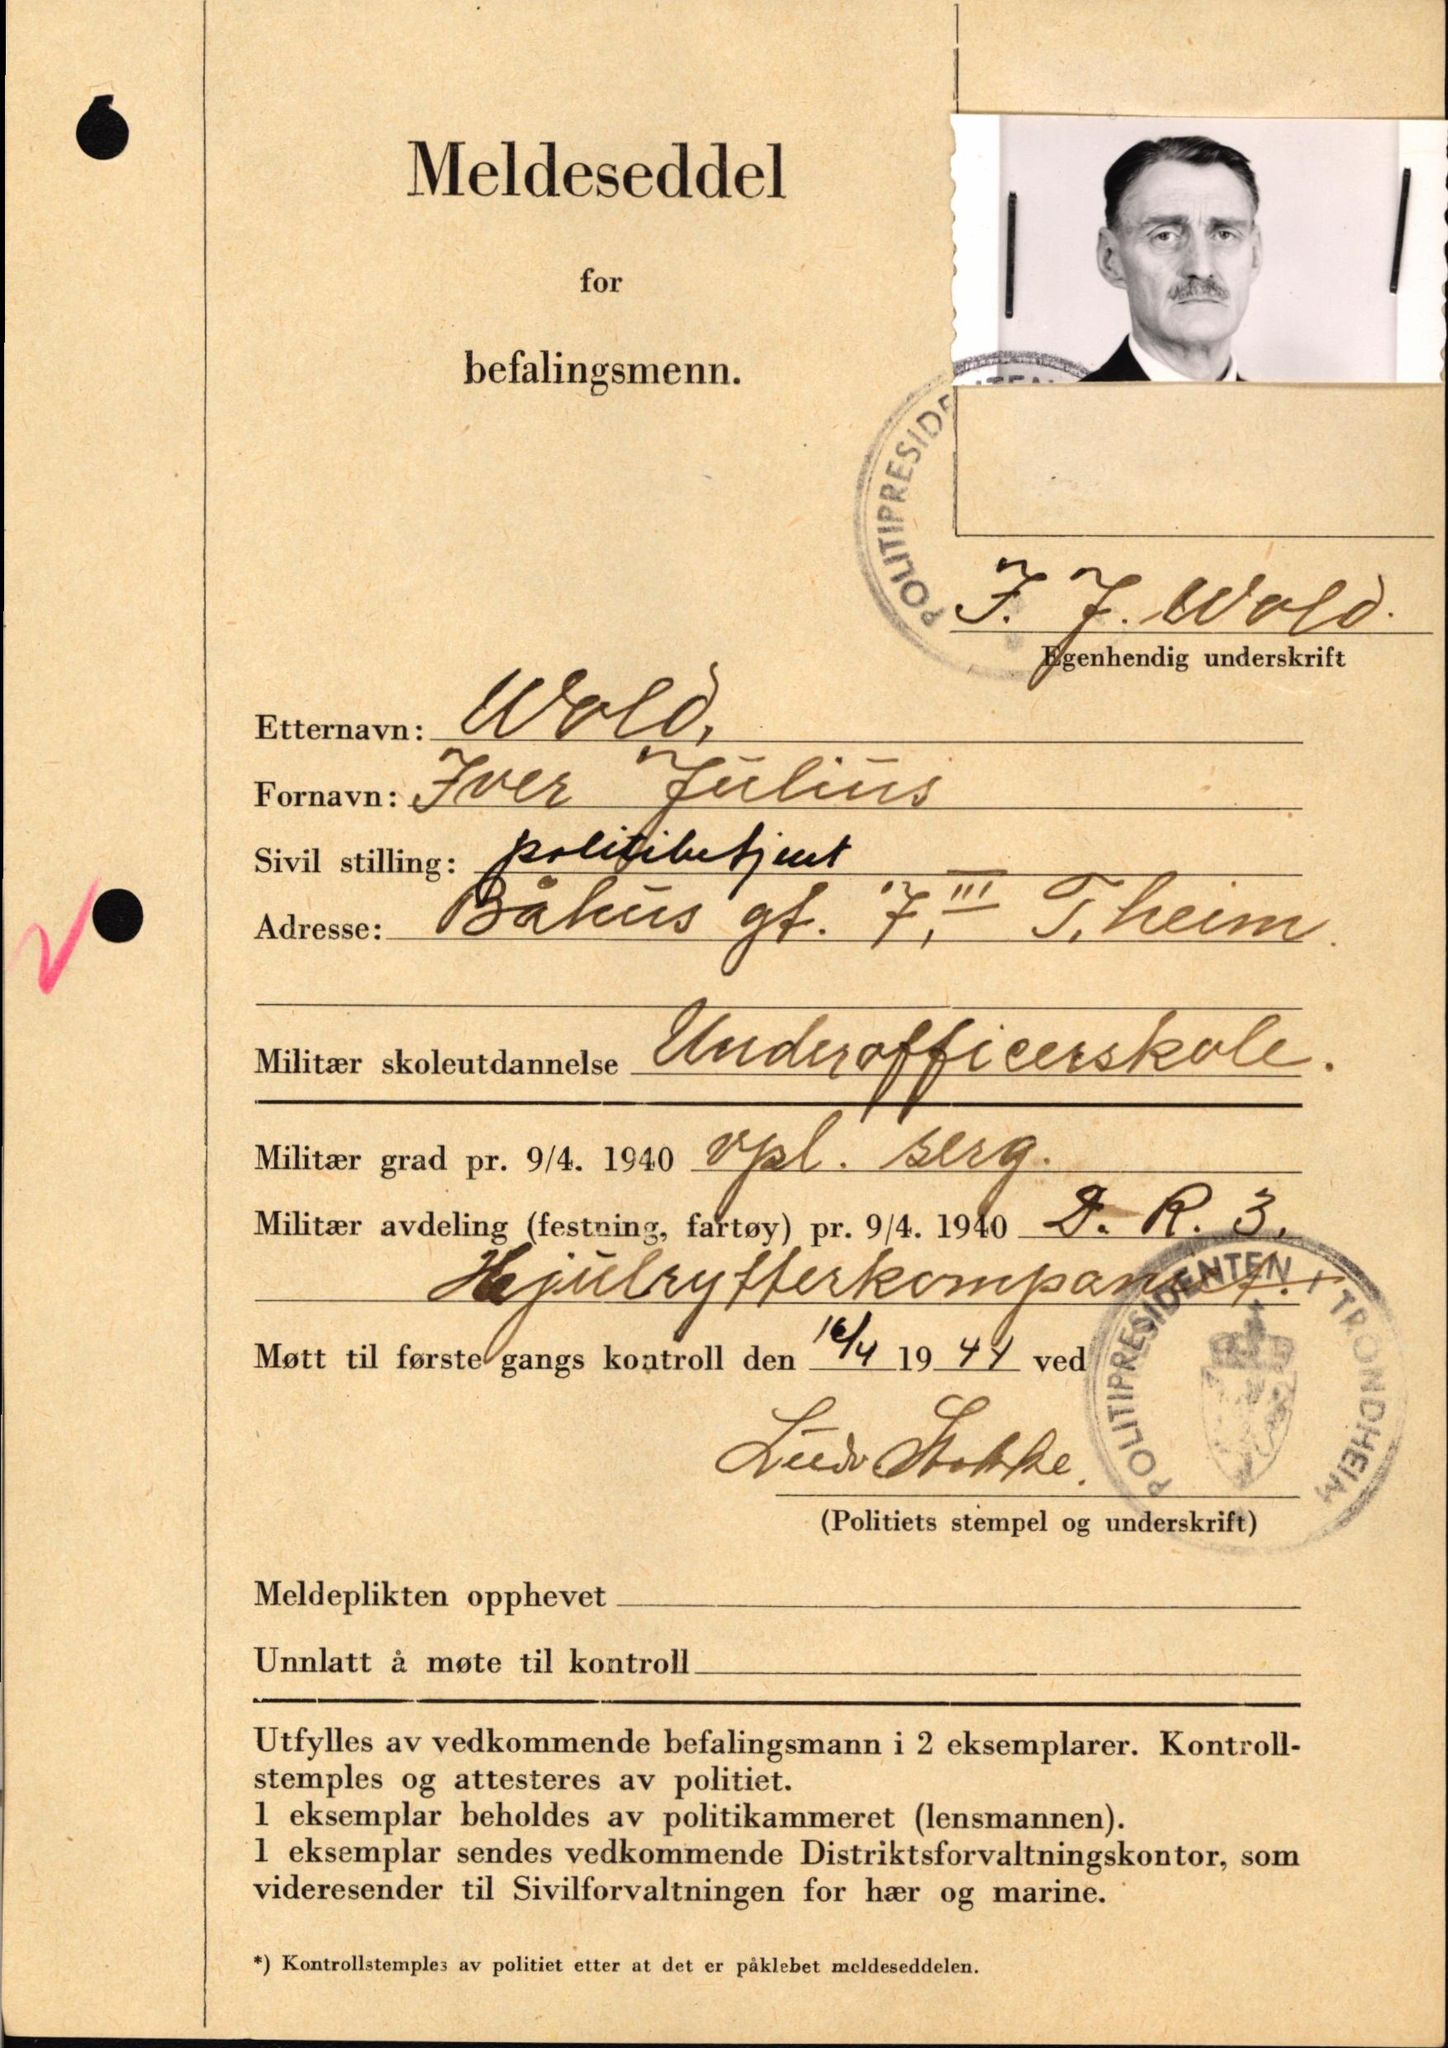 Meldeseddel
for
befalingsmenn.
POLITIPRESIDENTEN
I. J. Wold.
Egenhendig underskrift
Etternavn: Wold,
Fornavn: Iver Julius
Sivil stilling: politibetjent
Adresse: Båhus gt. 7, III T.heim.
Militær skoleutdannelse Underofficerskole.
Militær grad pr. 9/4. 1940 vpl. serg.
Militær avdeling (festning, fartøy) pr. 9/4. 1940 D. R. 3.
Hjulrytterkompaniet.
Møtt til første gangs kontroll den 16/4 1941 ved
POLITIPRESIDENTEN I TRONDHEIM
Ludv Stokke.
(Politiets stempel og underskrift)
Meldeplikten opphevet
Unnlatt å møte til kontroll
Utfylles av vedkommende befalingsmann i 2 eksemplarer. Kontroll-
stemples og attesteres av politiet.
1 eksemplar beholdes av politikammeret (lensmannen).
1 eksemplar sendes vedkommende Distriktsforvaltningskontor, som
videresender til Sivilforvaltningen for hær og marine.
*) Kontrollstemples av politiet etter at det er påklebet meldeseddelen.